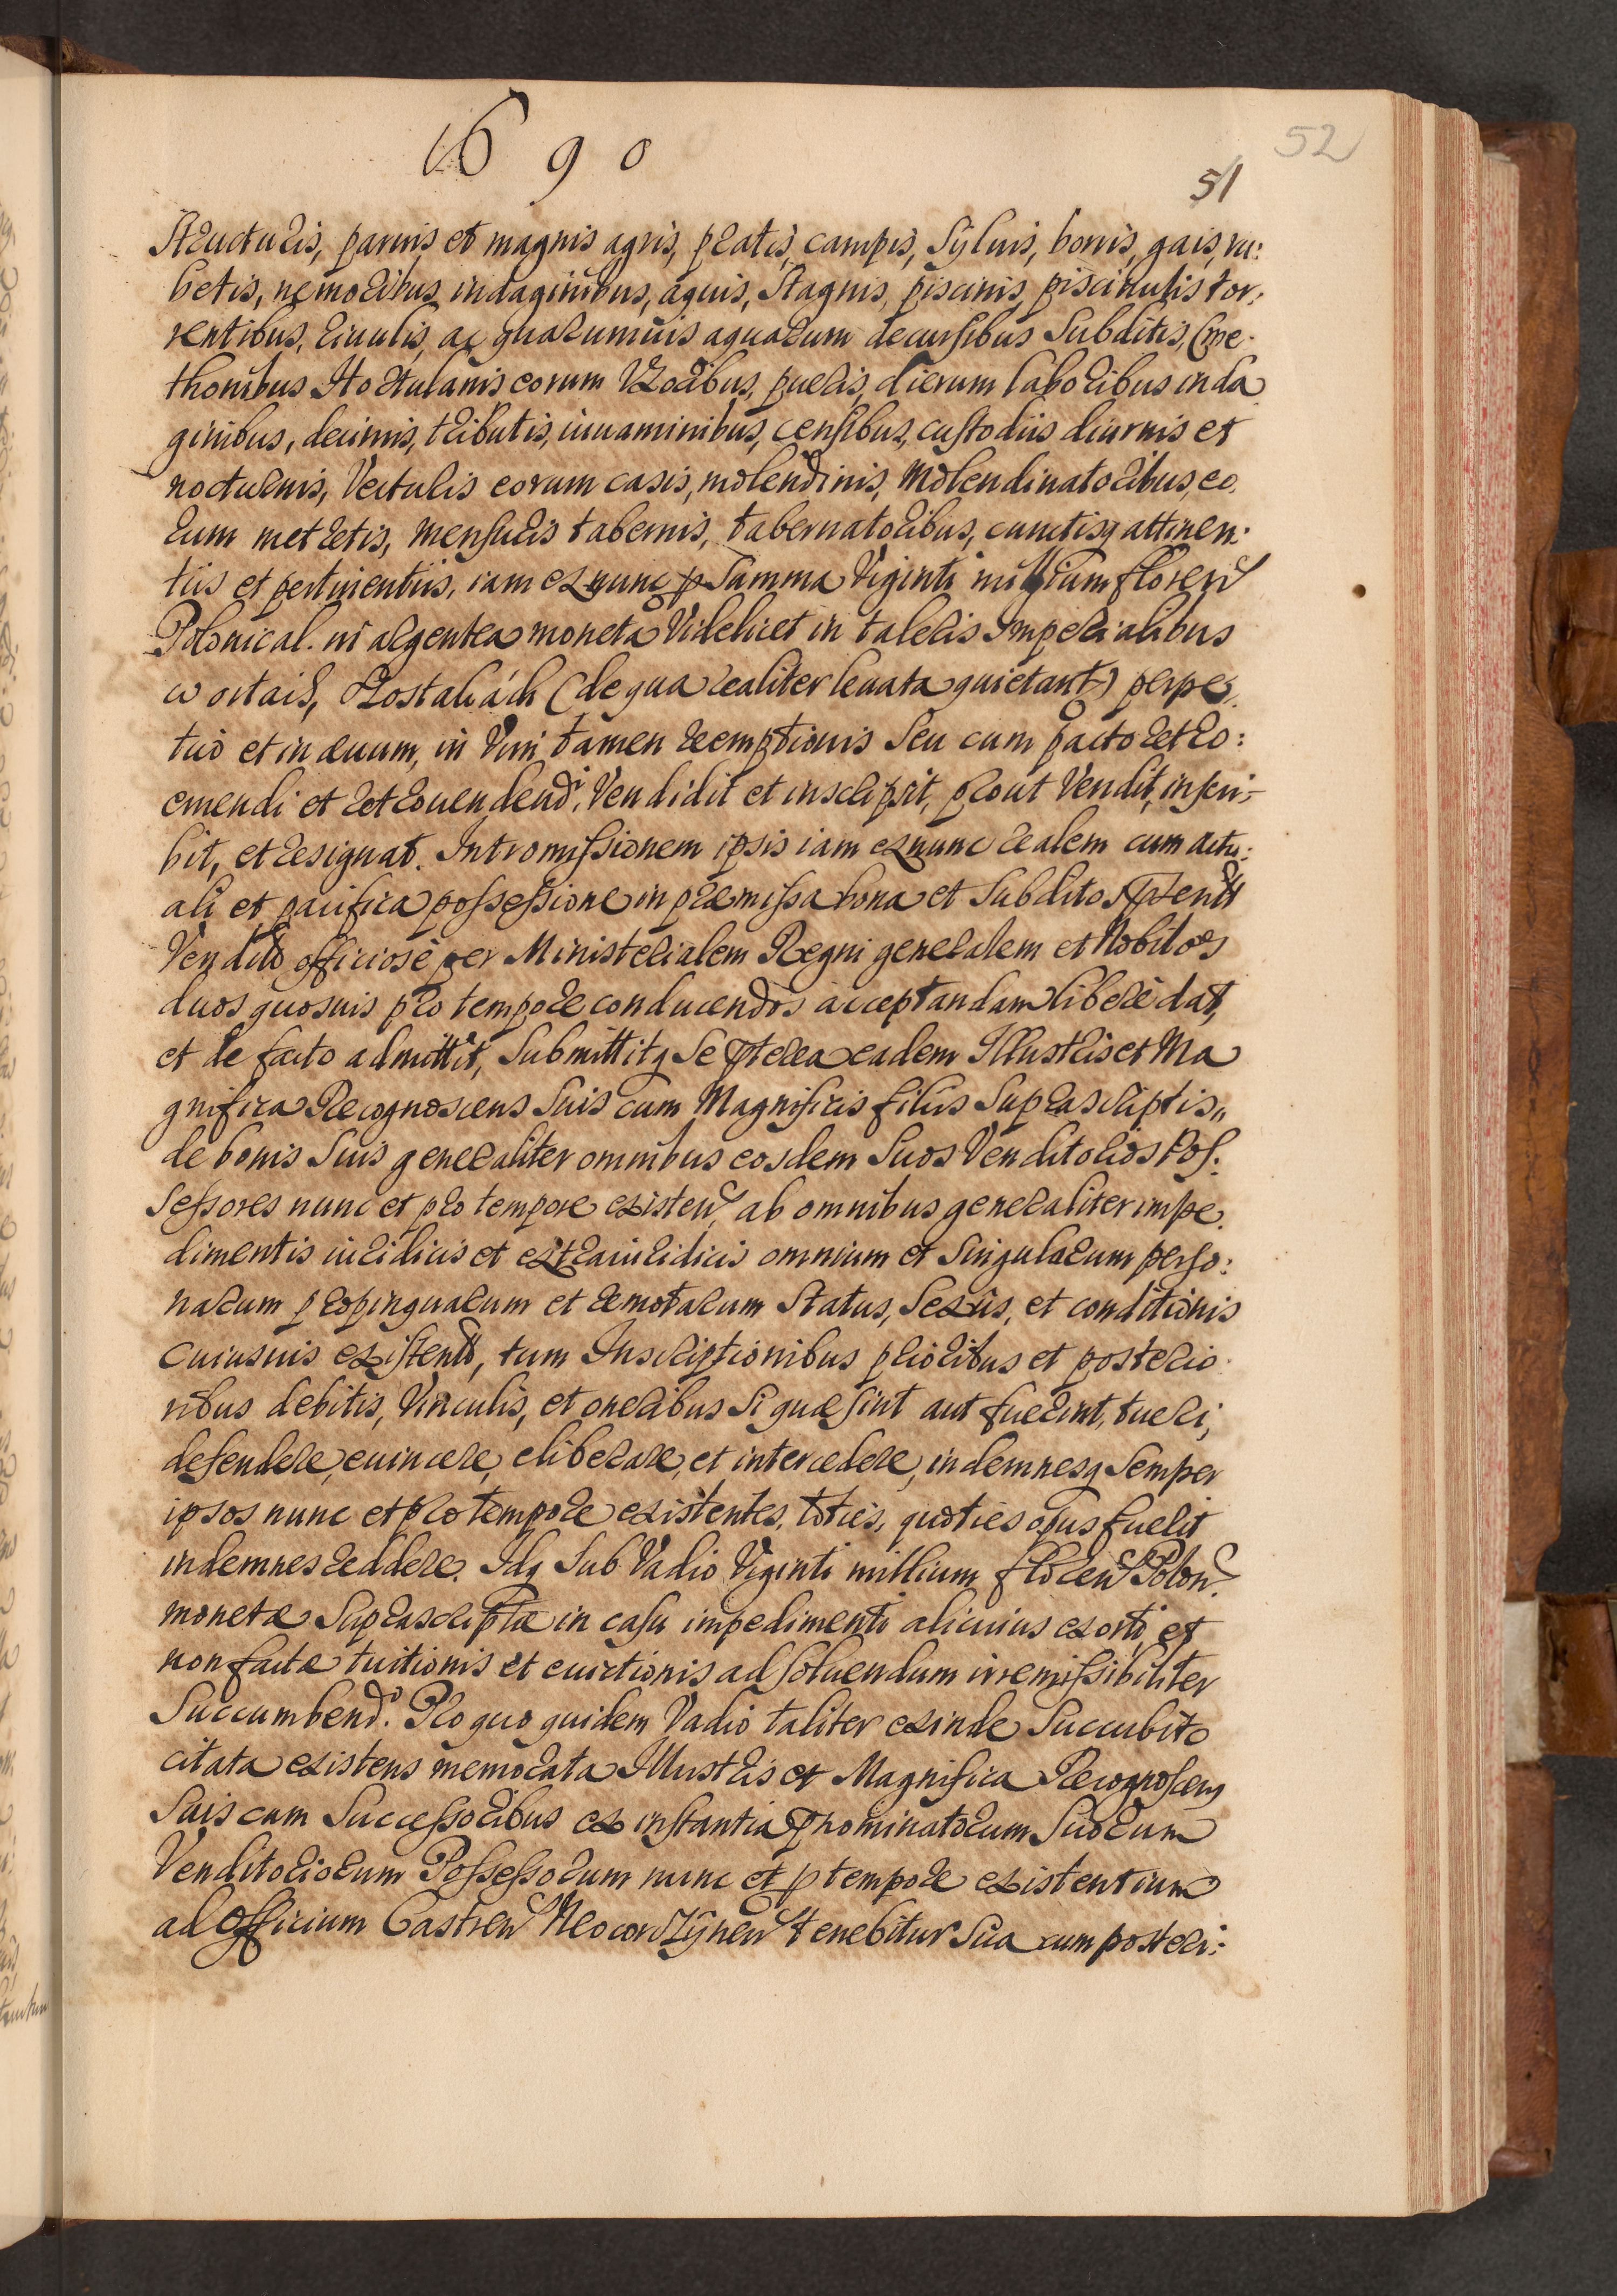 1690
52
51
Structuris, paruis et magnis agris, pratis, campis, Syluis, borris, gais, ru:
betis, nemoribus indaginibus, aquis, Stagnis, piscinis, piscinulis tor:
rentibus, riuulis, ac quarumuis aquarum decursibus Subditis, Cme:
thonibus Hortulanis eorum Uxoribus, pueris, dierum laboribus inda
ginibus, decimis, tributis, iuuaminibus, censibus, custodiis diurnis et
nocturnis, Vecturis eorum casis, molendinis, Molendinatoribus, eo.
rum metretis, mensuris tabernis, tabernatoribus, cunctisq attinen:
tiis et pertinentiis, iam ex nunc p Summa Viginti millium floren
Polonical. in argentea moneta Videlicet in taleris Imperialibus
w ortach, Szostakách (de qua realiter leuata quietant) perpe
tuò et in æuum, in Vim tamen reemptionis Seu cum pacto retro:
emendi et retrouendendi, Vendidit et inscripsit, prout Vendit, inscri:
bit, et resignat. Intromissionem ipsis iam ex nunc realem cum actu:
ali et pacifica possessione in præmissa bona et Subditos ptend
Vendito officiosè per Ministerialem Regni generalem et Nobiles
duos quosuis pro tempore conducendos acceptandam liberè dat,
et de facto admittit, Submittitq Se pterea eadem Illustris et Ma
gnifica Recognoscens Suis cum Magnificis filiis Suprascriptis,,
de bonis Suis generaliter omnibus eosdem Suos Venditorios Pos:
sessores nunc et pro tempore existen, ab omnibus generaliter impe.
dimentis iuridicis et extraiuridicis omnium et Singularum perso:
narum propinquarum et remotarum Status, Sexûs, et conditionis
cuiusuis existend, tum Inscriptionibus prioribus et posterio
ribus debitis, Vinculis, et oneribus Si quæ sint aut fuerint, tueri,
defendere, euincere, eliberare, et intercedere, indemnesq Semper
ipsos nunc et pro tempore existentes, toties, quoties opus fuerit
indemnes reddere. Idq Sub Vadio Viginti millium floren Polon.
monetæ Suprascriptæ in casu impedimenti alicuius exorti, et
non factæ tuitionis et euictionis ad soluendum irremissibiliter
Succumbend. Pro quo quidem Vadio taliter exinde Succubito
citata existens memorata Illustris et Magnifica Recognoscens
Suis cum Successoribus ex instantia pnominatorum Suorum
Venditoriorum Possessorum nunc et p tempore existentium
ad Officium Castren Neocorczynen tenebitur Sua cum posteri: